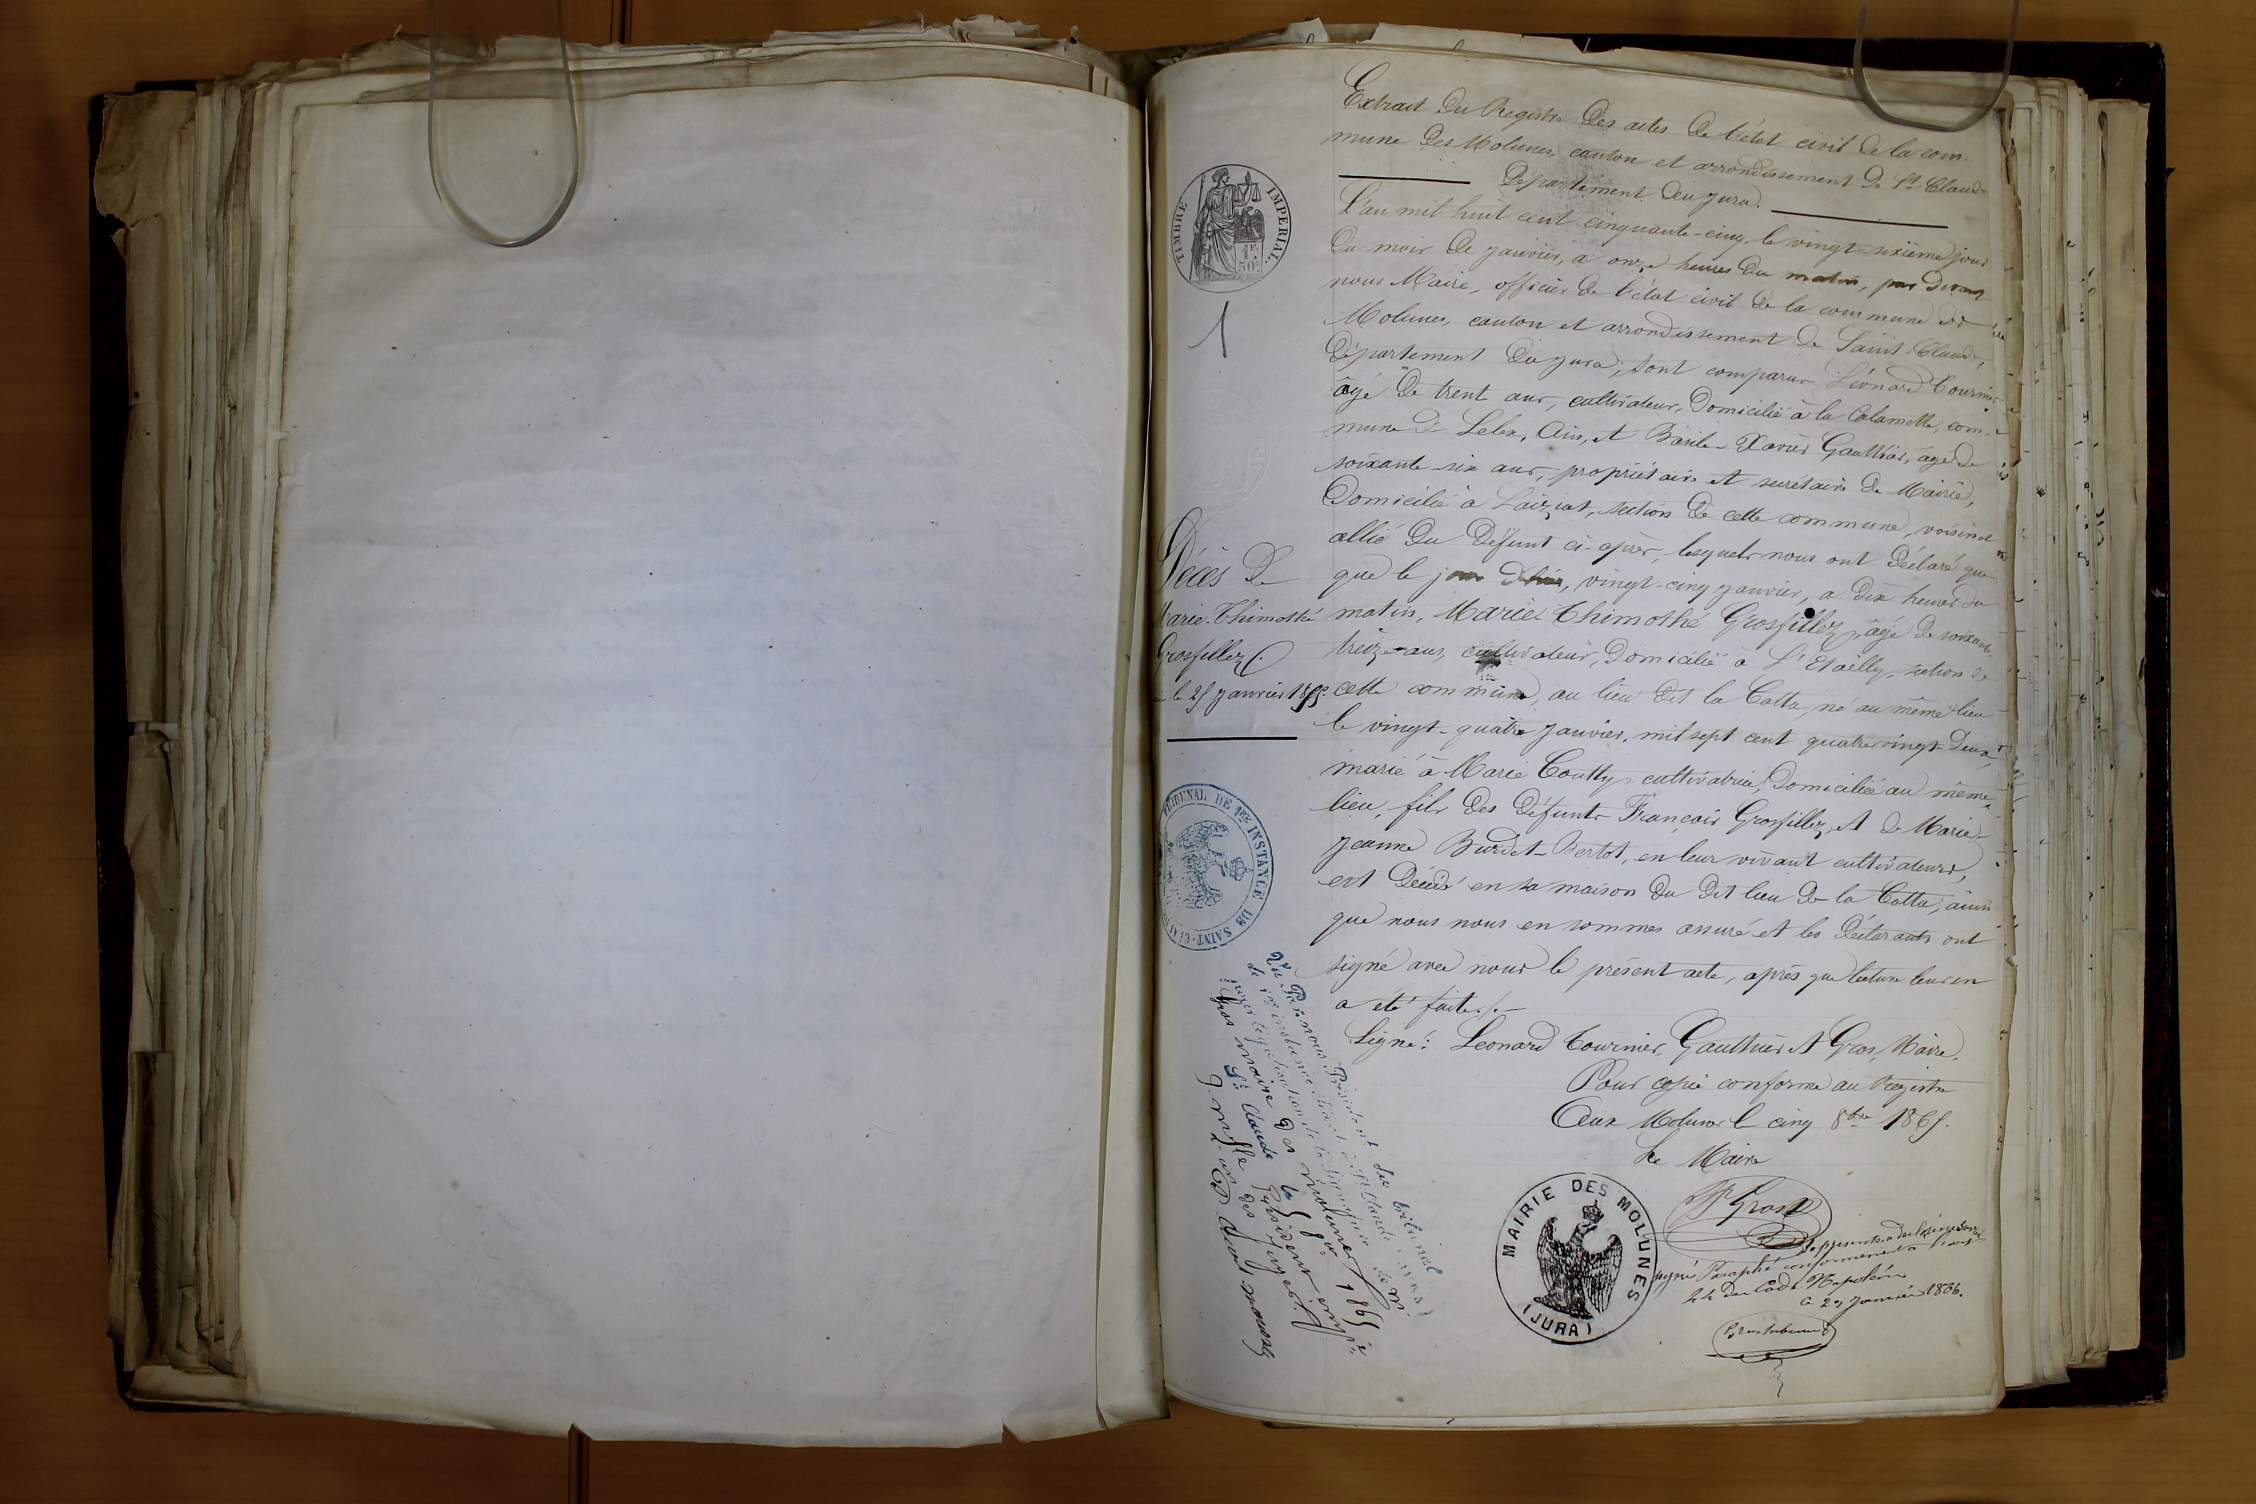 Extrait du Registre des actes de l'état civil de la com-
mune des Molunes, canton et arrondissement de St Claude
Département du Jura.
L'an mil huit cent cinquante-cinq le vingt-sixième jour
du mois de janvier, à onze heures du matin, par devant
nous Maire, officier de l'état civil de la commune des
Molunes, canton et arrondissement de Saint-Claude,
département du Jura, sont comparus Léonard Tournier
âgé de trent ans, cultivateur, domicilié à la Calamette, com-
mune de Lelex, Ain, et Basile-Xavier Gauthier, âgé de
soixante-six ans, propriétaire et secrétaire de Mairie,
domicilié à Laiziat, section de cette commune, voisin et
allié du défunt ci-après, lesquels nous ont déclaré que
que le jour d'hier, vingt-cinq janvier, a dix heures du
matin, Marie Thimothé Grosfillez, âgé de soixante
treize ans, cultivateur, domicilié à L'Etailly, section de
cette commune, au lieu dit la Catta, né au même lieu
le vingt-quatre janvier, mil sept cent quatre vingt-deux,
marié à Marie Coutty cultivatrice, domiciliée au même
lieu, fils des défunts François Grosfillez, et de Marie-
Jeanne Burdet-Bertot, en leur vivant cultivateurs,
est décédé en sa maison du dit lieu de la Catta, ainsi
que nous nous en sommes assuré et les déclarants ont
signé avec nous le présent acte, après que lecture leur en
a été faite./.
Signé: Leonard Tournier, Gauthier et Gros, Maire.
Pour copie conforme au Registre
Aux Molunes le cinq 8bre 1865.
Le Maire
Gros
signé Paraphé conformément à l'art
44 du Code Napoléon
le 29 Janvier 1866.
TIMBRE IMPERIAL.
1F.
50C
1
Décès de
Marie-Thimothé
Grosfillez
le 25 janvier 1855.
TRIBUNAL DE 1ERE INSTANCE DE SAINT-CLAUDE
Vu Par nous Président du tribunal
de 1re instance séant à St Claude (Jura)
pour légalisation de la signature de Mr
Gros maire des Molunes
St Claude le 5 8bre 1865
MAIRIE DES MOLUNES
(JURA)